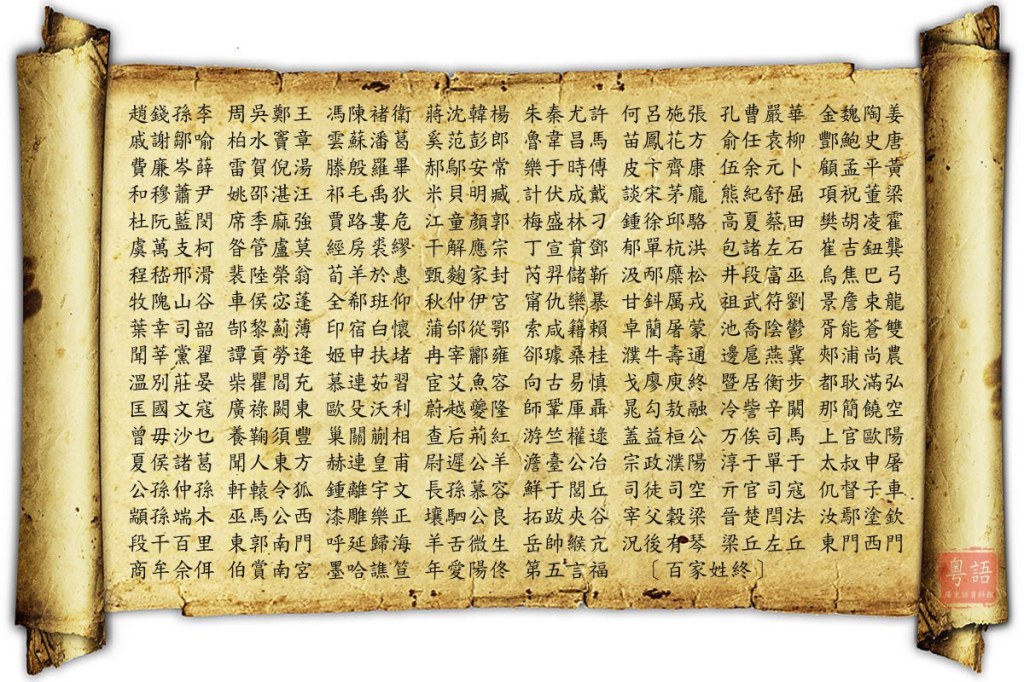 趙錢孫李 周吳鄭王 馮陳褚衛 蔣沈韓楊 朱秦尤許 何呂施張 孔曹嚴華 金魏陶姜
戚謝鄒喻 柏水竇章 雲蘇潘葛 奚范彭郎 魯韋昌馬 苗鳳花方 俞任袁柳 酆鮑史唐
費廉岑薛 雷賀倪湯 滕殷羅畢 郝鄔安常 樂于時傅 皮卞齊康 伍余元卜 顧孟平黃
和穆蕭尹 姚邵湛汪 祁毛禹狄 米貝明臧 計伏成戴 談宋茅龐 熊紀舒屈 項祝董梁
杜阮藍閔 席季麻強 賈路婁危 江童顏郭 梅盛林刁 鍾徐邱駱 高夏蔡田 樊胡凌霍
虞萬支柯 昝管盧莫 經房裘繆 干解應宗 丁宣賁鄧 郁單杭洪 包諸左石 崔吉鈕龔
程嵇邢滑 裴陸榮翁 荀羊於惠 甄麴家封 芮羿儲靳 汲邴糜松 井段富巫 烏焦巴弓
牧隗山谷 車侯宓蓬 全郗班仰 秋仲伊宮 甯仇欒暴 甘鈄厲戎 祖武符劉 景詹束龍
葉幸司韶 郜黎薊薄 印宿白懷 蒲邰從鄂 索咸籍賴 卓藺屠蒙 池喬陰鬱 胥能蒼雙
聞莘黨翟 譚貢勞逄 姬申扶堵 冉宰酈雍 郤璩桑桂 濮牛壽通 邊扈燕冀 郟浦尚農
溫別莊晏 柴瞿閻充 慕連茹習 宦艾魚容 向古易慎 戈廖庾終 暨居衡步 都耿滿弘
匡國文寇 廣祿闕東 歐殳沃利 蔚越夔隆 師鞏厙聶 晁勾敖融 冷訾辛闞 那簡饒空
曾毋沙乜 養鞠須豐 巢關蒯相 查后荊紅 游竺權逯 蓋益桓公 万俟司馬 上官歐陽
夏侯諸葛 聞人東方 赫連皇甫 尉遲公羊 澹臺公冶 宗政濮陽 淳于單于 太叔申屠
公孫仲孫 軒轅令狐 鍾離宇文 長孫慕容 鮮于閭丘 司徒司空 亓官司寇 仉督子車
顓孫端木 巫馬公西 漆雕樂正 壤駟公良 拓跋夾谷 宰父穀梁 晉楚閆法 汝鄢塗欽
段千百里 東郭南門 呼延歸海 羊舌微生 岳帥緱亢 況後有琴 梁丘左丘 東門西門
商牟佘佴 伯賞南宮 墨哈譙笪 年愛陽佟 第五言福 〔百家姓終〕
粵語
廣東話資料館